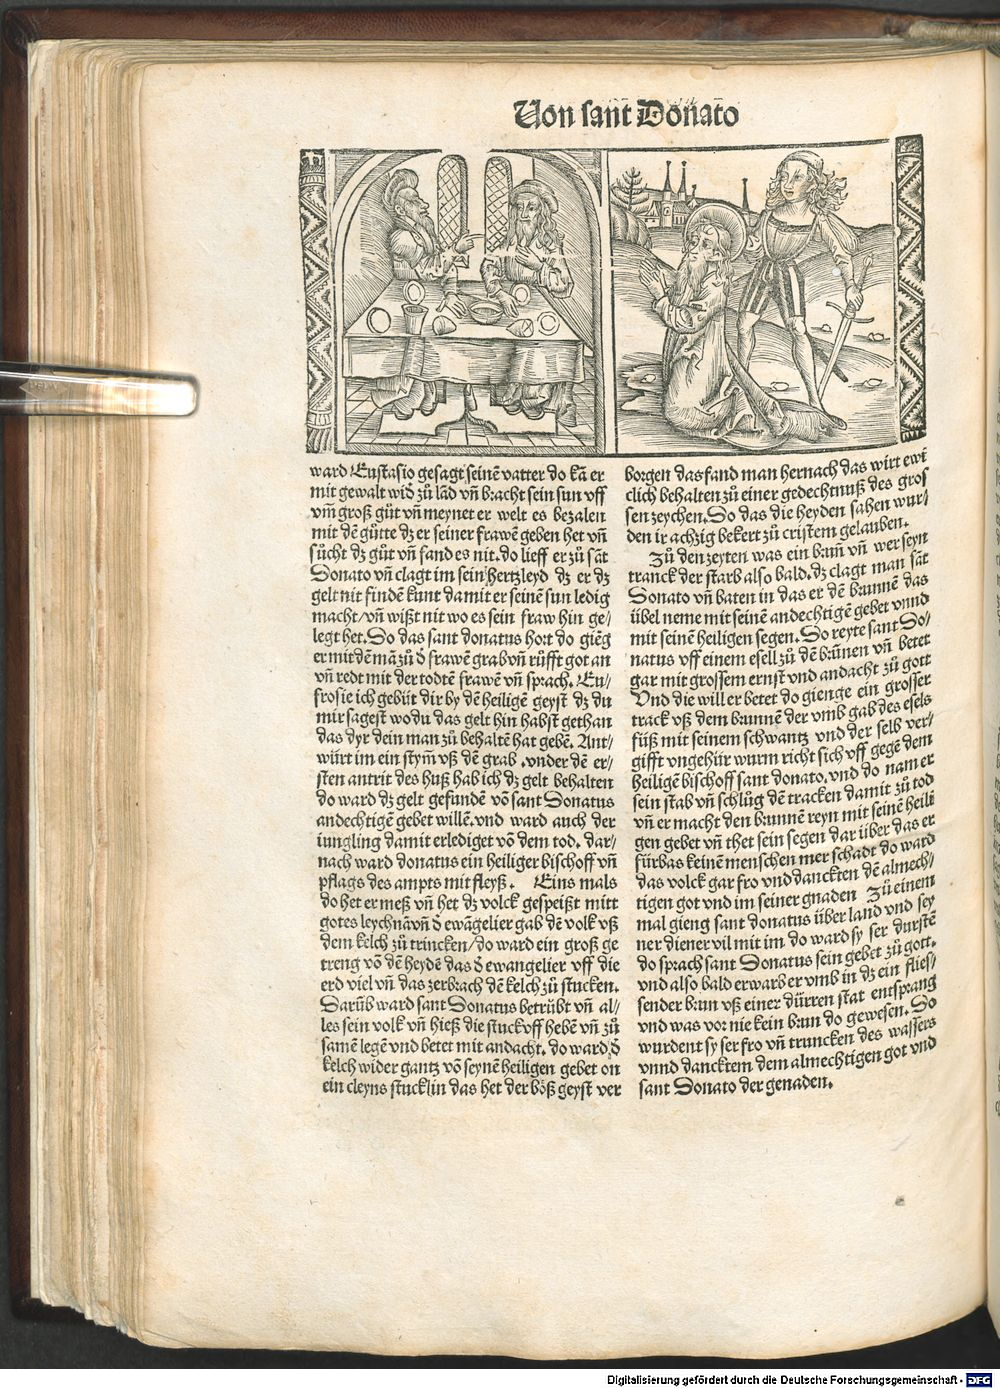 Von sant Donato
ward Eustasio gesagt seinē vatter do kā er
mit gewalt wid̄ zů lād vñ bracht sein sun vff
vm̄ groß gůt vñ meynet er welt es bezalen
mit dē gůtte dz er seiner frawē geben het vñ
sůcht dz gůt vñ fand es nit. do lieff er zů sāt
Donato vñ clagt im sein hertzleyd dz er dz
gelt nit findē kunt damit er seinē sun ledig
macht/ vñ wißt nit wo es sein fraw hin ge/
legt het. Do das sant donatus hort do giēg
er mit dē mā zů d̄ frawē grab vñ růfft got an
vñ redt mit der todtē frawē vñ sprach. Eu/
frosie ich gebüt dir by dē heiligē geyst dz du
mir sagest wo du das gelt hin habst gethan
das dyr dein man zů behaltē hat gebē. Ant/
würt im ein stym̄ vß dē grab. vnder dē er/
sten antrit des huß hab ich dz gelt behalten
do ward dz gelt gefundē vō sant Donatus
andechtigē gebet willē. vnd ward auch der
iungling damit erlediget vō dem tod. dar/
nach ward donatus ein heiliger bischoff vñ
pflags des ampts mit fleyß. Eins mals
do het er meß vñ het dz volck gespeißt mitt
gotes leychnā vñ d̄ ewāgelier gab dē volk vß
dem kelch zů trincken/ do ward ein groß ge
treng vō dē heydē das d̄ ewangelier vff die
erd viel vñ das zerbrach dē kelch zů stucken.
Darūb ward sant Donatus betrübt vñ al/
les sein volk vñ hieß die stuck vff hebē vñ zů
samē legē vnd betet mit andacht. do ward d̄
kelch wider gantz vō seynē heiligen gebet on
ein cleyns stucklin das het der böß geyst ver
borgen das fand man hernach das wirt ewi
clich behalten zů einer gedechtnuß des gros
sen zeychen. Do das die heyden sahen wur/
den ir achzig bekert zů cristem gelauben.
Zů den zeyten was ein brun̄ vñ wer seyn
tranck der starb also bald. dz clagt man sāt
Donato vñ baten in das er dē brunnē das
übel neme mit seinē andechtigē gebet vnnd
mit seinē heiligen segen. Do reyte sant Do/
natus vff einem esell zů dē brūnen vñ betet
gar mit grossem ernst vnd andacht zů gott
Vnd die will er betet do gienge ein grosser
track vß dem brunnē der vmb gab des esels
füß mit seinem schwantz vnd der selb ver/
gifft vngehür wurm richt sich vff gegē dem
heiligē bischoff sant donato. vnd do nam er
sein stab vñ schlůg dē tracken damit zů tod
vñ er macht den brunnē reyn mit seinē heili
gen gebet vñ thet sein segen dar über das er
fürbas keinē menschen mer schadt do ward
das volck gar fro vnd danckten dē almech/
tigen got vnd im seiner gnaden Zů einem
mal gieng sant donatus über land vnd sey
ner diener vil mit im do ward sy ser durstē
do sprach sant Donatus sein gebet zů gott.
vnd also bald erwarb er vmb in dz ein flies/
sender brun vß einer dürren stat entsprang
vnd was vor nie kein brun do gewesen. Do
wurdent sy ser fro vñ truncken des wassers
vnnd dancktem dem almechtigen got vnd
sant Donato der genaden.
Digitalisierung gefördert durch die Deutsche Forschungsgemeinschaft - DFG